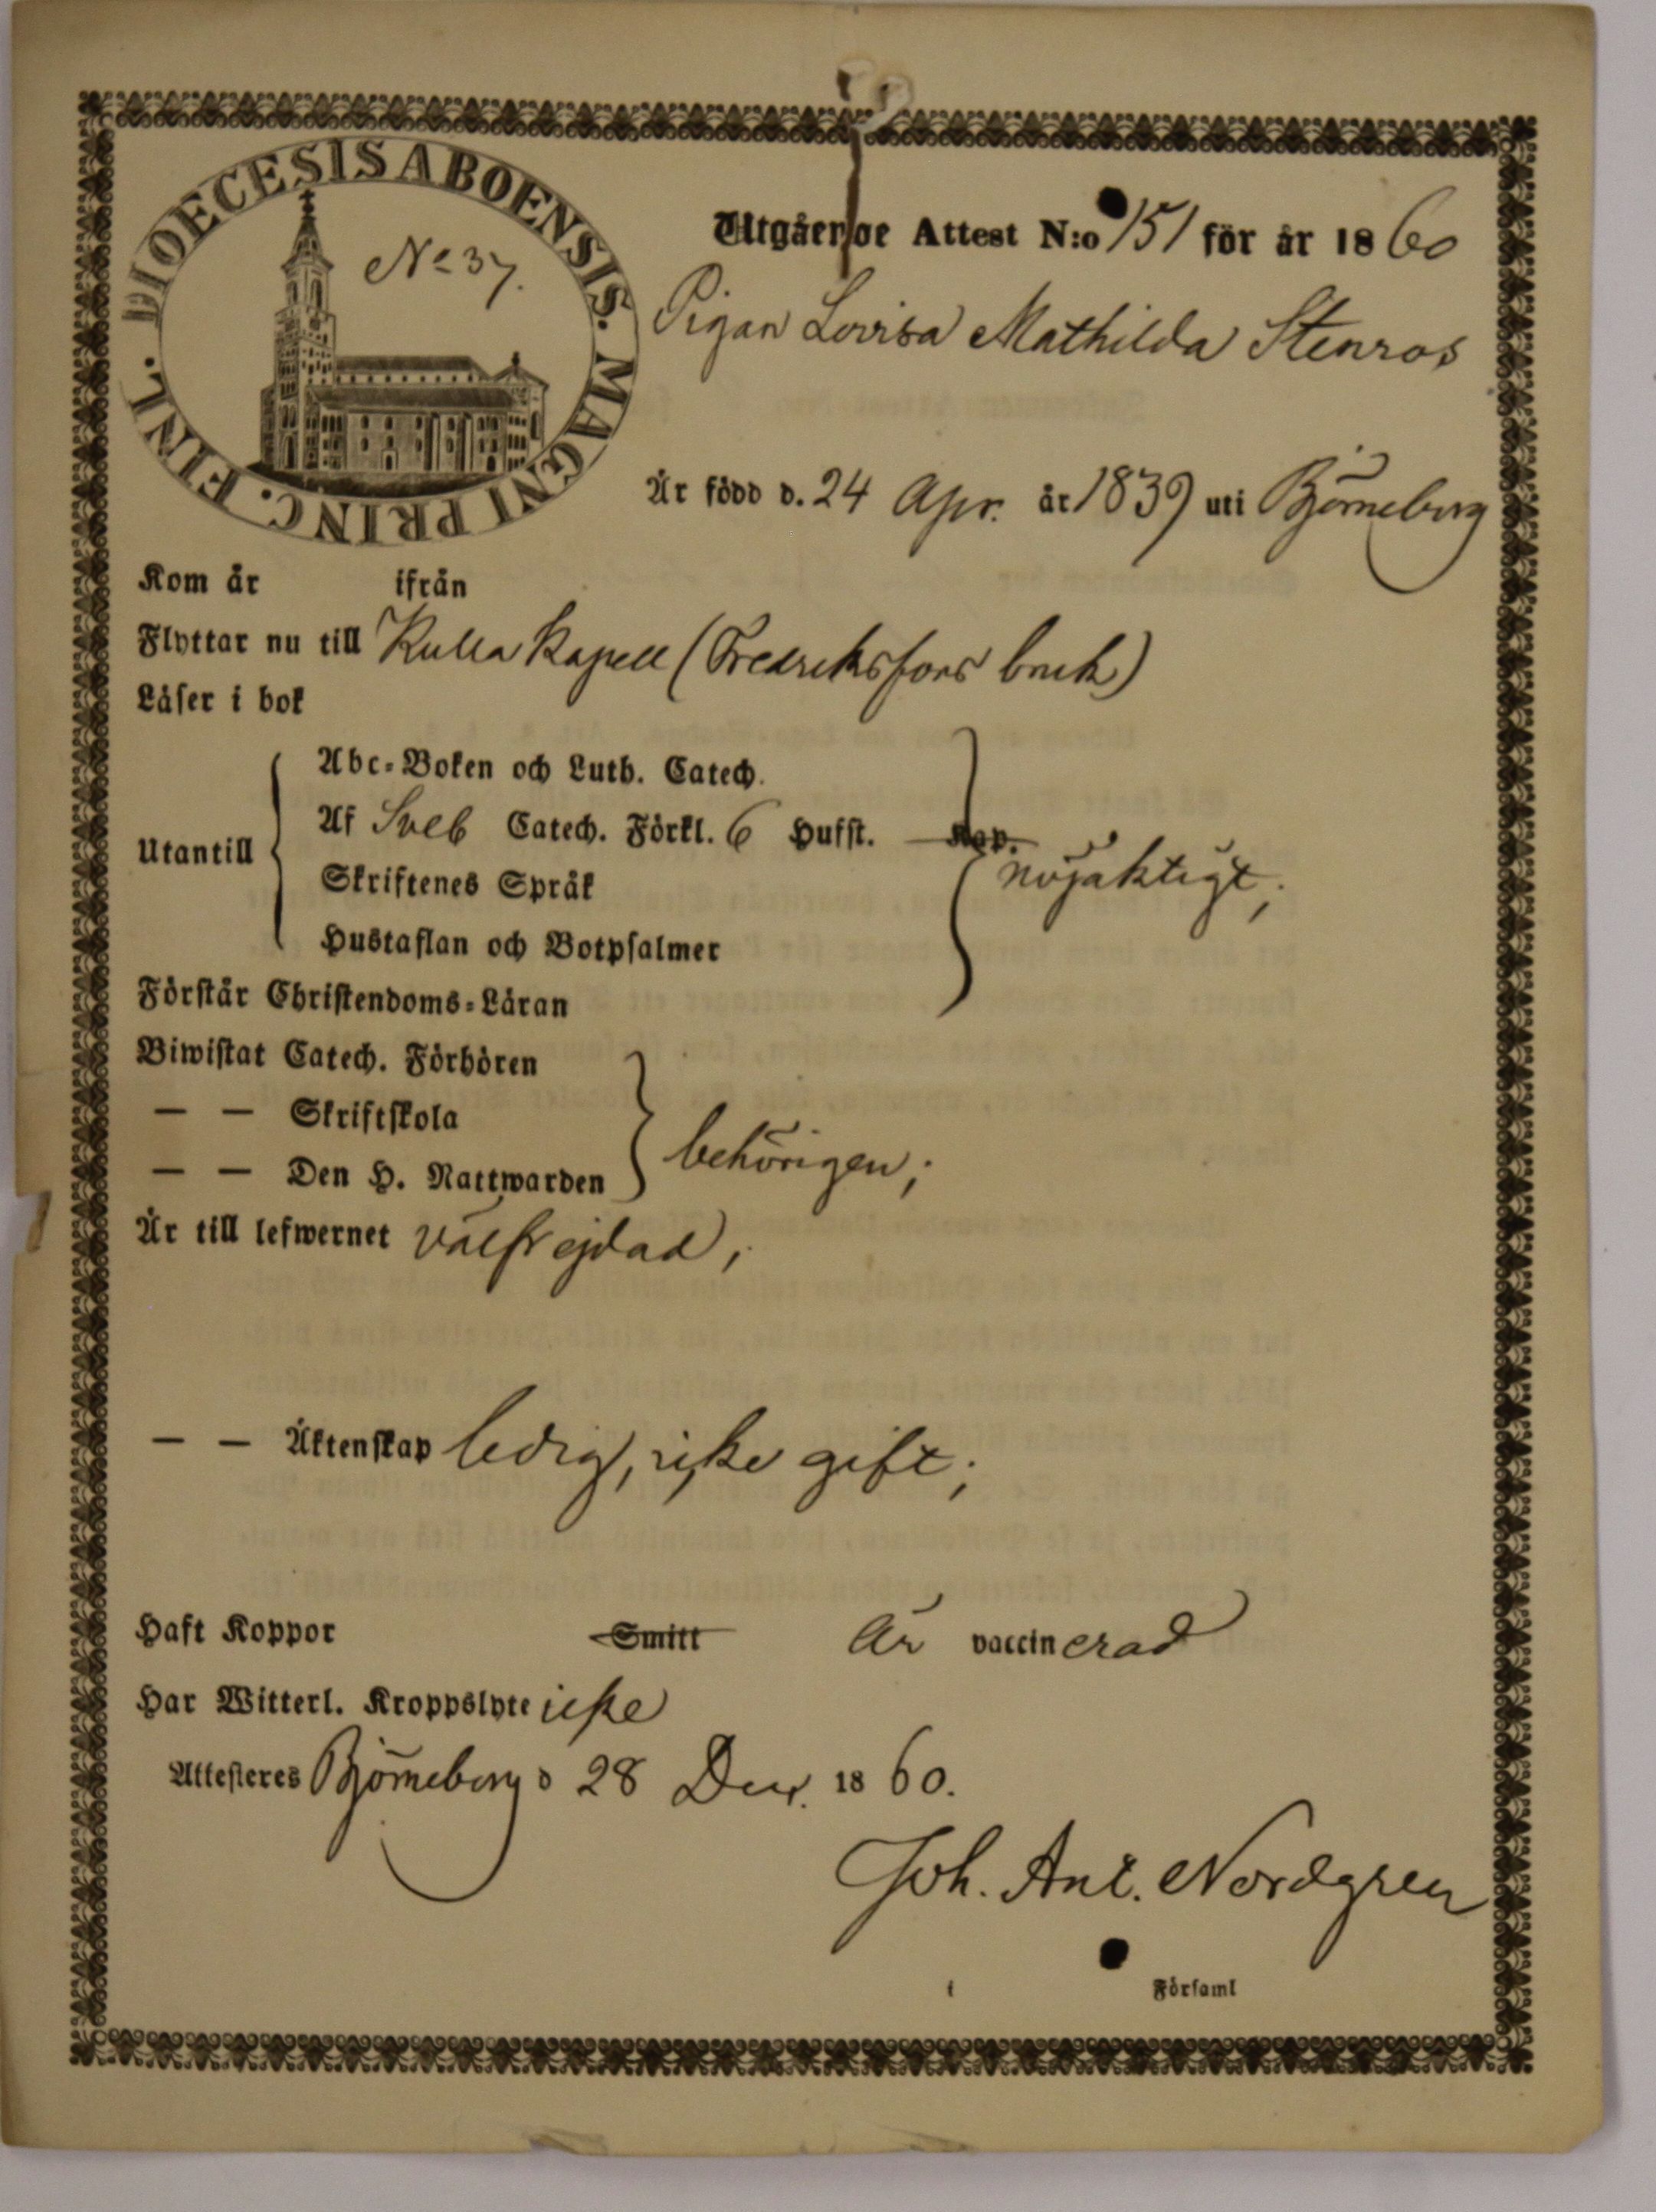 DIOECESIS ABOENSIS. MAGNI PRINC. FINL.
No 37.
Utgående Attest N:o 151 för år 1860
Pigan Lovisa Mathilda Stenros
Är född d. 24 Apr. år 1839 uti Björneborg
Kom år ifrån
Flyttar nu till Kulla Kapell (Fredriksfors bruk)
Läser i bok
Abc-Boken och Luth. Catech.
Af Sveb Catech. Förkl. 6 Hufst. Kap.
Utantill nöjaktigt;
Skriftenes Språk
Hustaflan och Botpsalmer
Förstår Christendoms-Läran
Biwistat Catech. Förhören
— — Skriftskola
behörigen;
— — Den H. Nattwarden
Är till lefwernet välfrejdad,
— — Äktenskap ledig, icke gift;
Haft Koppor Smitt är vaccinerad
Har Witterl. Kroppslyte icke
Attesteres Björneborg d 28 Dec. 1860.
Joh. Ant. Nordgren
i Församl